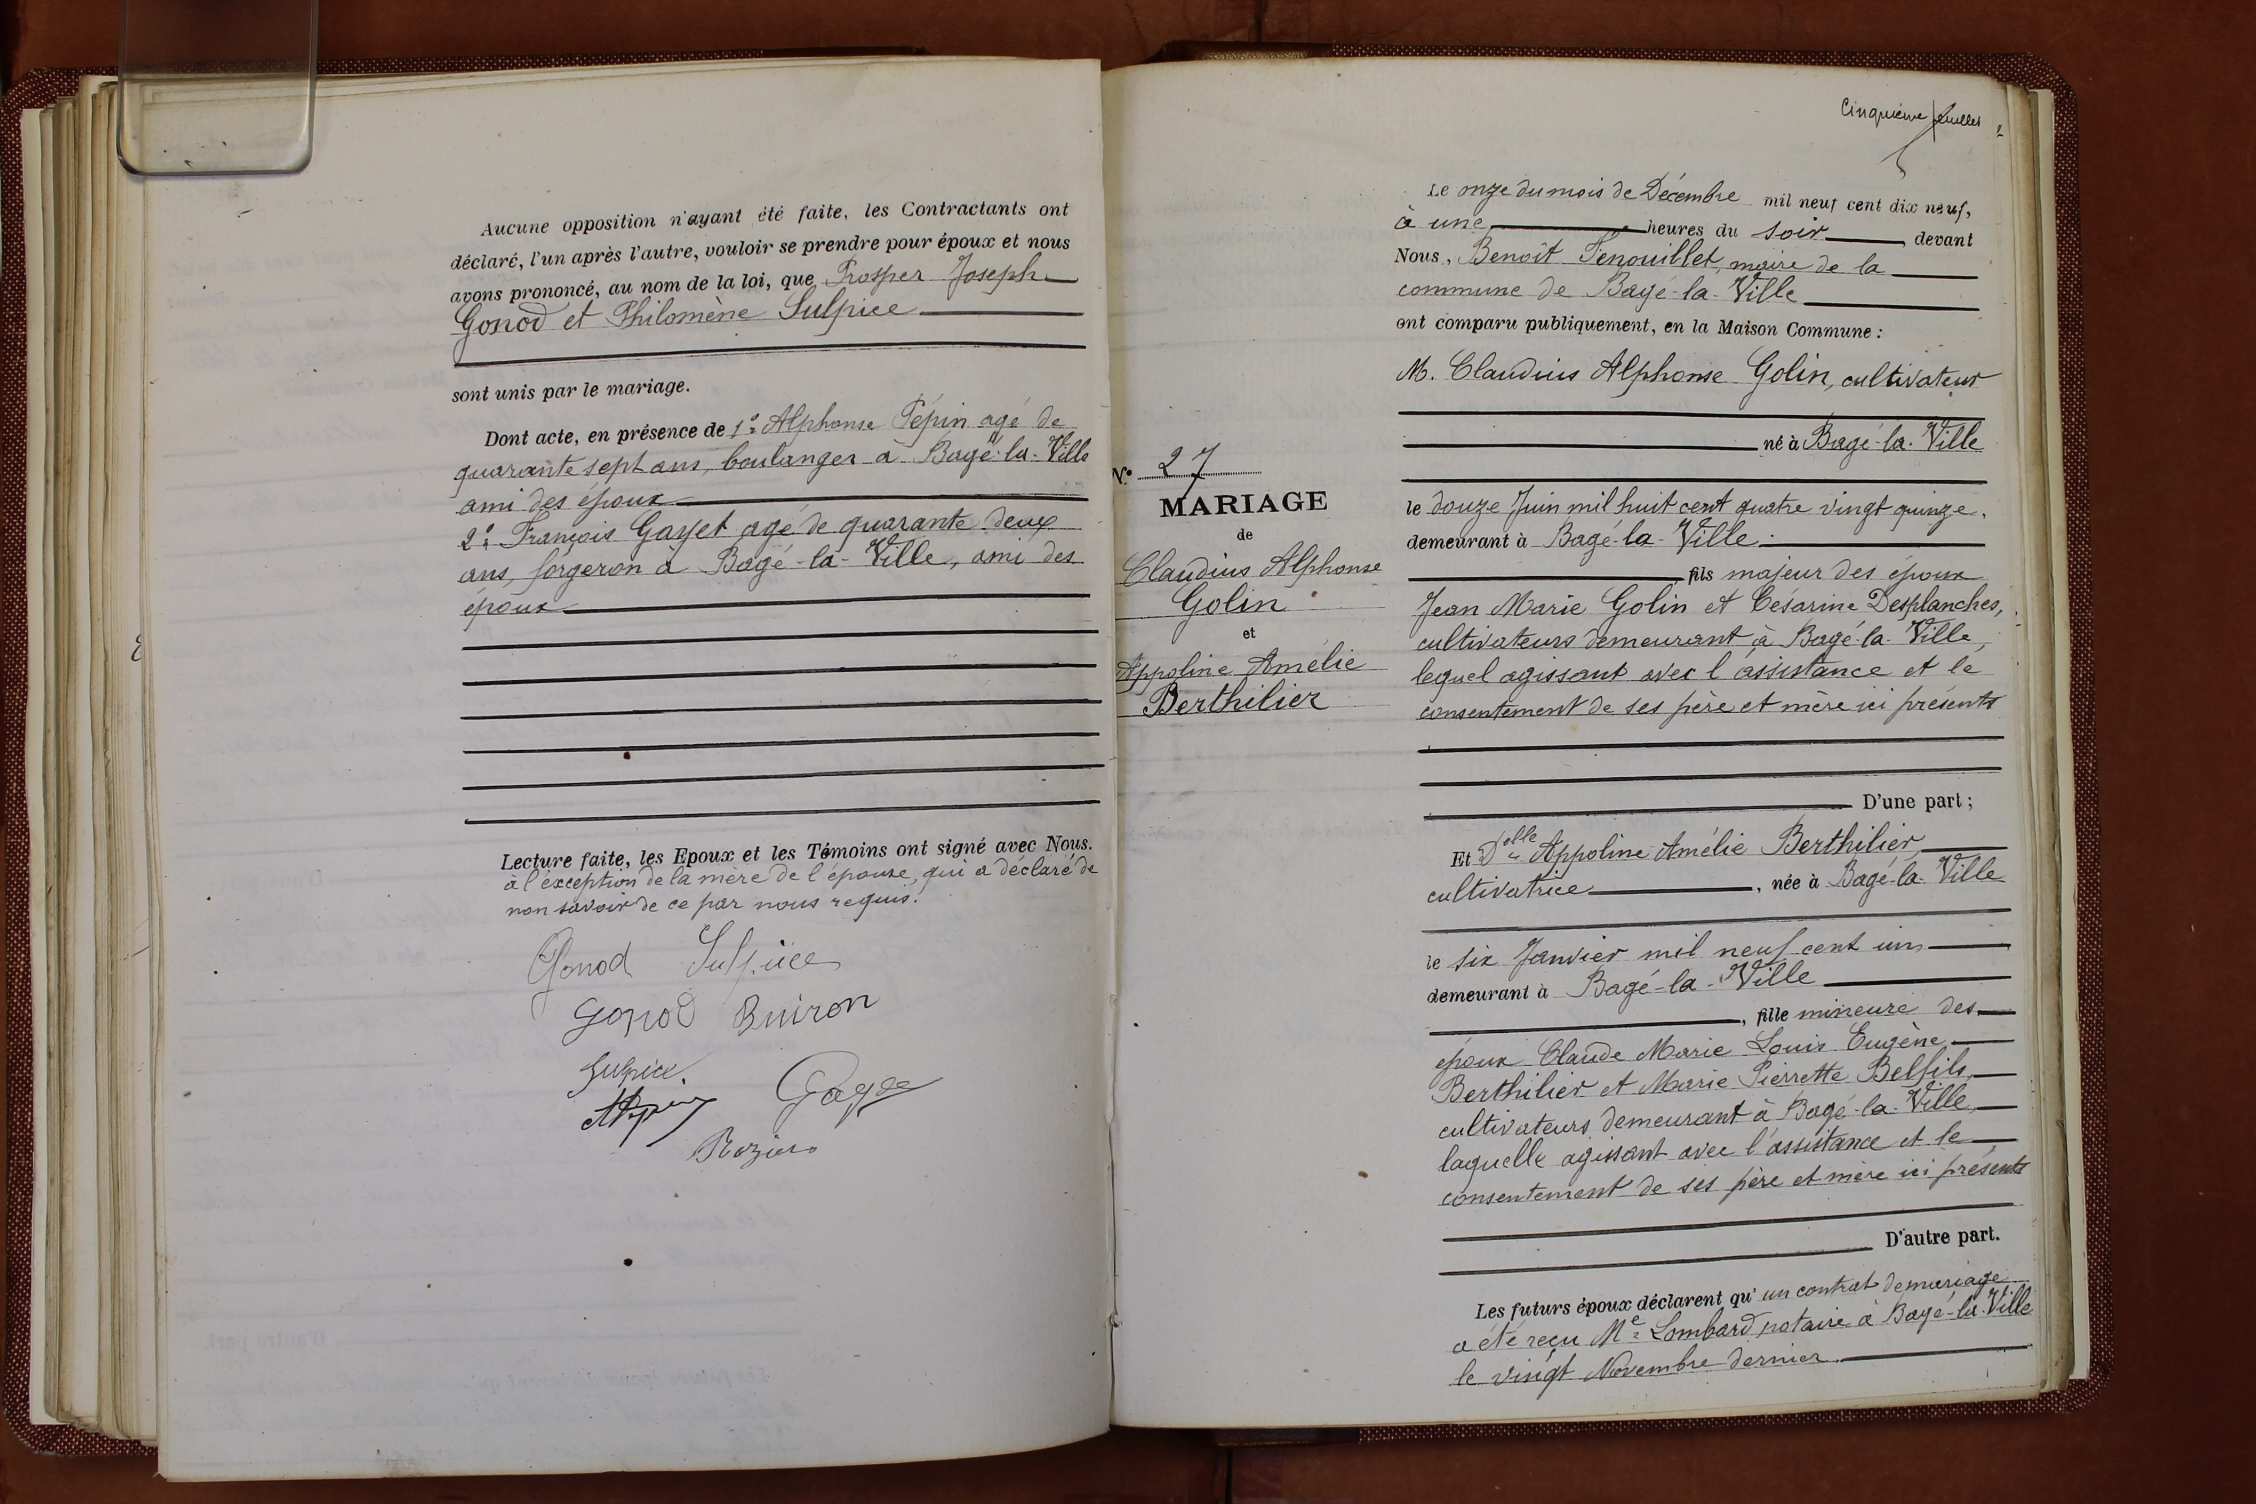 Aucune opposition n'ayant été faite, les Contractants ont
déclaré, l'un après l'autre, vouloir se prendre pour époux et nous
avons prononcé, au nom de la loi, que Prosper Joseph
Gonod et Philomène Sulpice
sont unis par le mariage.
Dont acte, en présence de 1° Alphonse Pépin agé de
quarante sept ans, boulanger à Bagé-la-Ville
ami des époux
2° François Gayet agé de quarante deux
ans, forgeron à Bagé-la-Ville, ami des
époux
Lecture faite, les Epoux et les Témoins ont signé avec Nous.
à l'éxception de la mère de l'épouse, qui a déclaré de
non savoir de ce par nous requis.
Gonod Sulpice
Gonod Buiron
Sulpice
APépin Gayet
Cinquième
Le onze du mois de Décembre mil neuf cent dix neuf,
à une heures du soir devant
Nous, Benoît Fenouillet, maire de la
commune de Bagé-la-Ville
ont comparu publiquement, en la Maison Commune :
M. Claudius Alphonse Golin, cultivateur
né à Bagé-la-Ville
le douze Juin mil huit cent quatre vingt quinze.
demeurant à Bagé-la-Ville.
fils majeur des époux
Jean Marie Golin et Césarine Desplanches,
cultivateurs demeurant à Bagé-la-Ville,
lequel agissant avec l'assistance et le
consentement de ses père et mère ici présents
D'une part ;
N° 27
MARIAGE
de
Claudius Alphonse
Golin
et
Appoline Amélie
Berthilier
Et Delle Appoline Amélie Berthilier
cultivatrice, née à Bagé-la-Ville
le six Janvier mil neuf cent un
demeurant à Bagé-la-Ville
, fille mineure des
époux Claude Marie Louis Eugène
Berthilier et Marie Pierrette Belfils
cultivateurs demeurant à Bagé-la-Ville,
laquelle agissant avec l'assistance et le
consentement de ses père et mère ici présents
D'autre part.
Les futurs époux déclarent qu'un contrat de mariage
a été reçu Me Lombard notaire à Bagé-la-Ville
le vingt Novembre dernier.